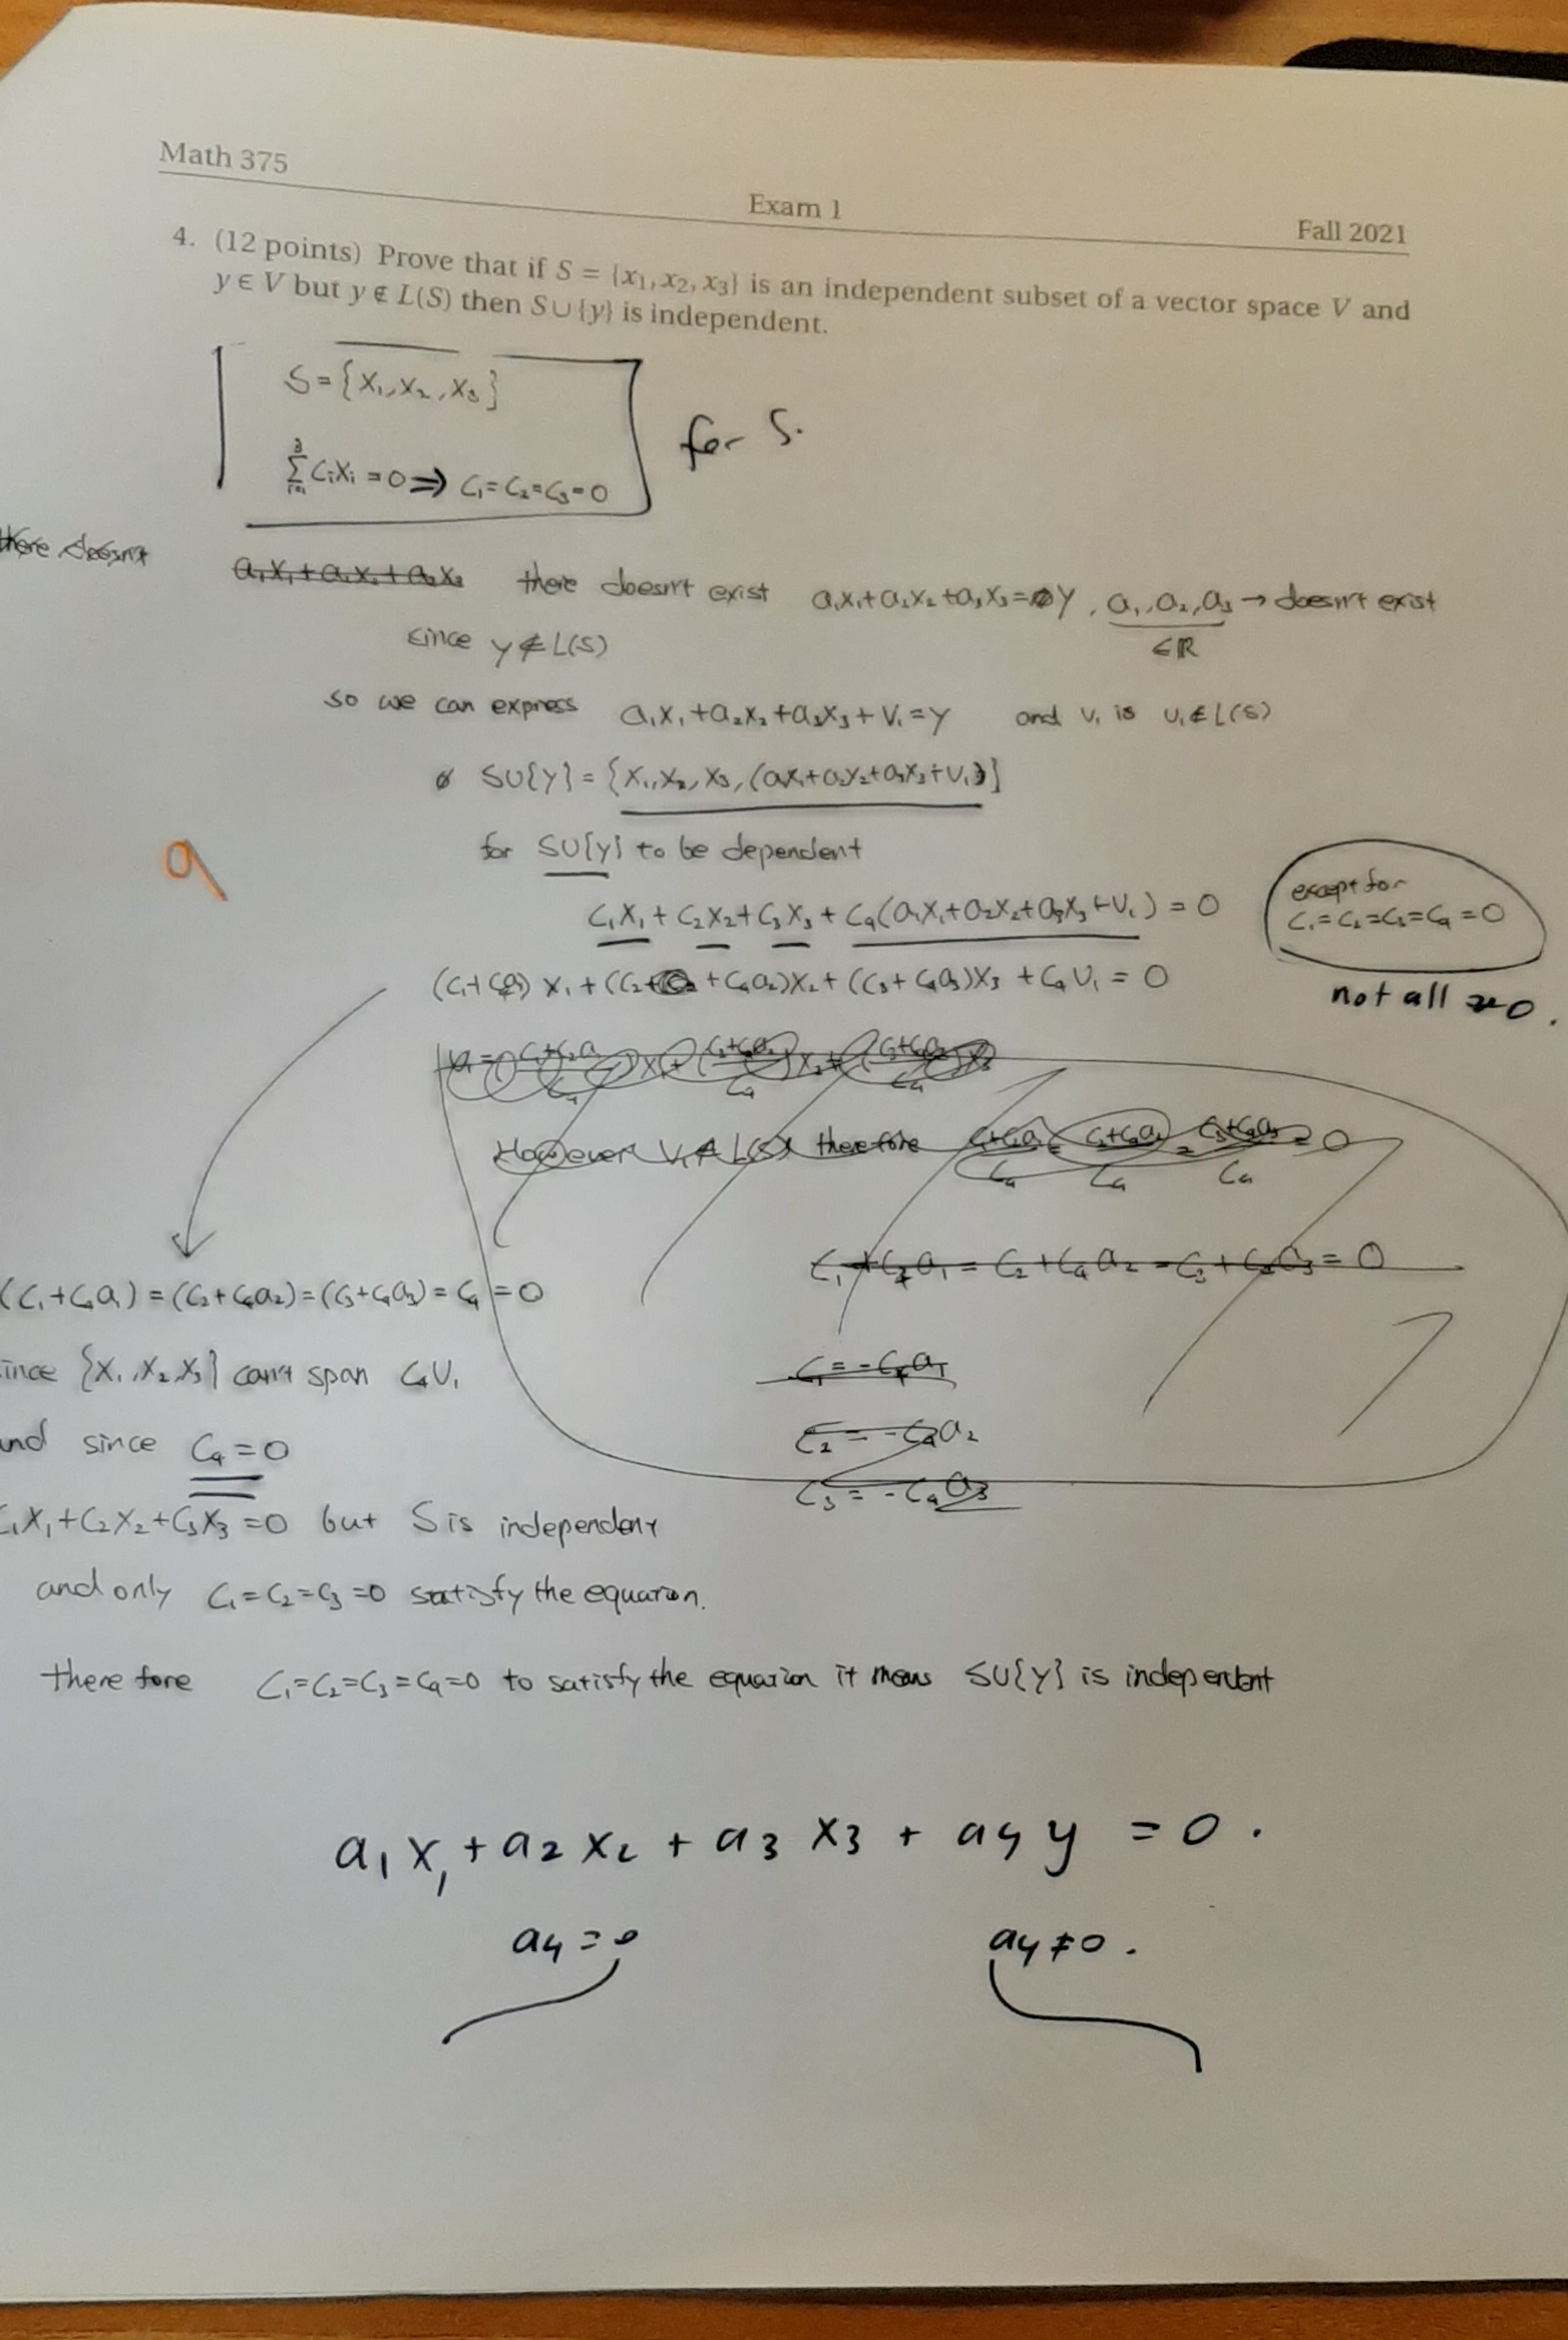 Math 375
Exam 1
Fall 2021
4. (12 points) Prove that if S = {x₁, x₂, x₃} is an independent subset of a vector space V and
y ∈ V but y ∉ L(S) then S ∪ {y} is independent.
S = {x₁, x₂, x₃}
for S.
∑³ᵢ₌₁ Cᵢxᵢ = 0 ⇒ C₁ = C₂ = C₃ = 0
there doesn't
a₁x₁ + a₂x₂ + a₃x₃ there doesn't exist a₁x₁+a₂x₂+a₃x₃=y, a₁,a₂,a₃ → doesn't exist
since y ∉ L(S) ∈ℝ
so we can express a₁x₁+a₂x₂+a₃x₃+v₁=y and v₁ is v₁∉L(S)
SU{y} = {x₁, x₂, x₃, (a₁x₁+a₂x₂+a₃x₃+v₁)}
9
for SU{y} to be dependent
C₁x₁ + C₂x₂ + C₃x₃ + C₄(a₁x₁+a₂x₂+a₃x₃+v₁) = 0
except for
C₁=C₂=C₃=C₄=0
not all 0.
(C₁+C₄a₁)x₁ + (C₂+C₄a₂)x₂ + (C₃+C₄a₃)x₃ + C₄v₁ = 0
However v₁∉L(S) therefore
C₁+C₄a₁ = C₂+C₄a₂ = C₃+C₄a₃ = 0
(C₁+C₄a₁) = (C₂+C₄a₂) = (C₃+C₄a₃) = C₄ = 0
C₁ = -C₄a₁
ince {x₁,x₂,x₃} can't span C₄v₁
C₂ = -C₄a₂
and since C₄=0
C₃ = -C₄a₃
C₁x₁+C₂x₂+C₃x₃=0 but S is independent
and only C₁=C₂=C₃=0 satisfy the equation.
therefore C₁=C₂=C₃=C₄=0 to satisfy the equation it means SU{y} is independent
a₁x₁ + a₂x₂ + a₃x₃ + a₄y = 0.
a₄=0 a₄≠0.